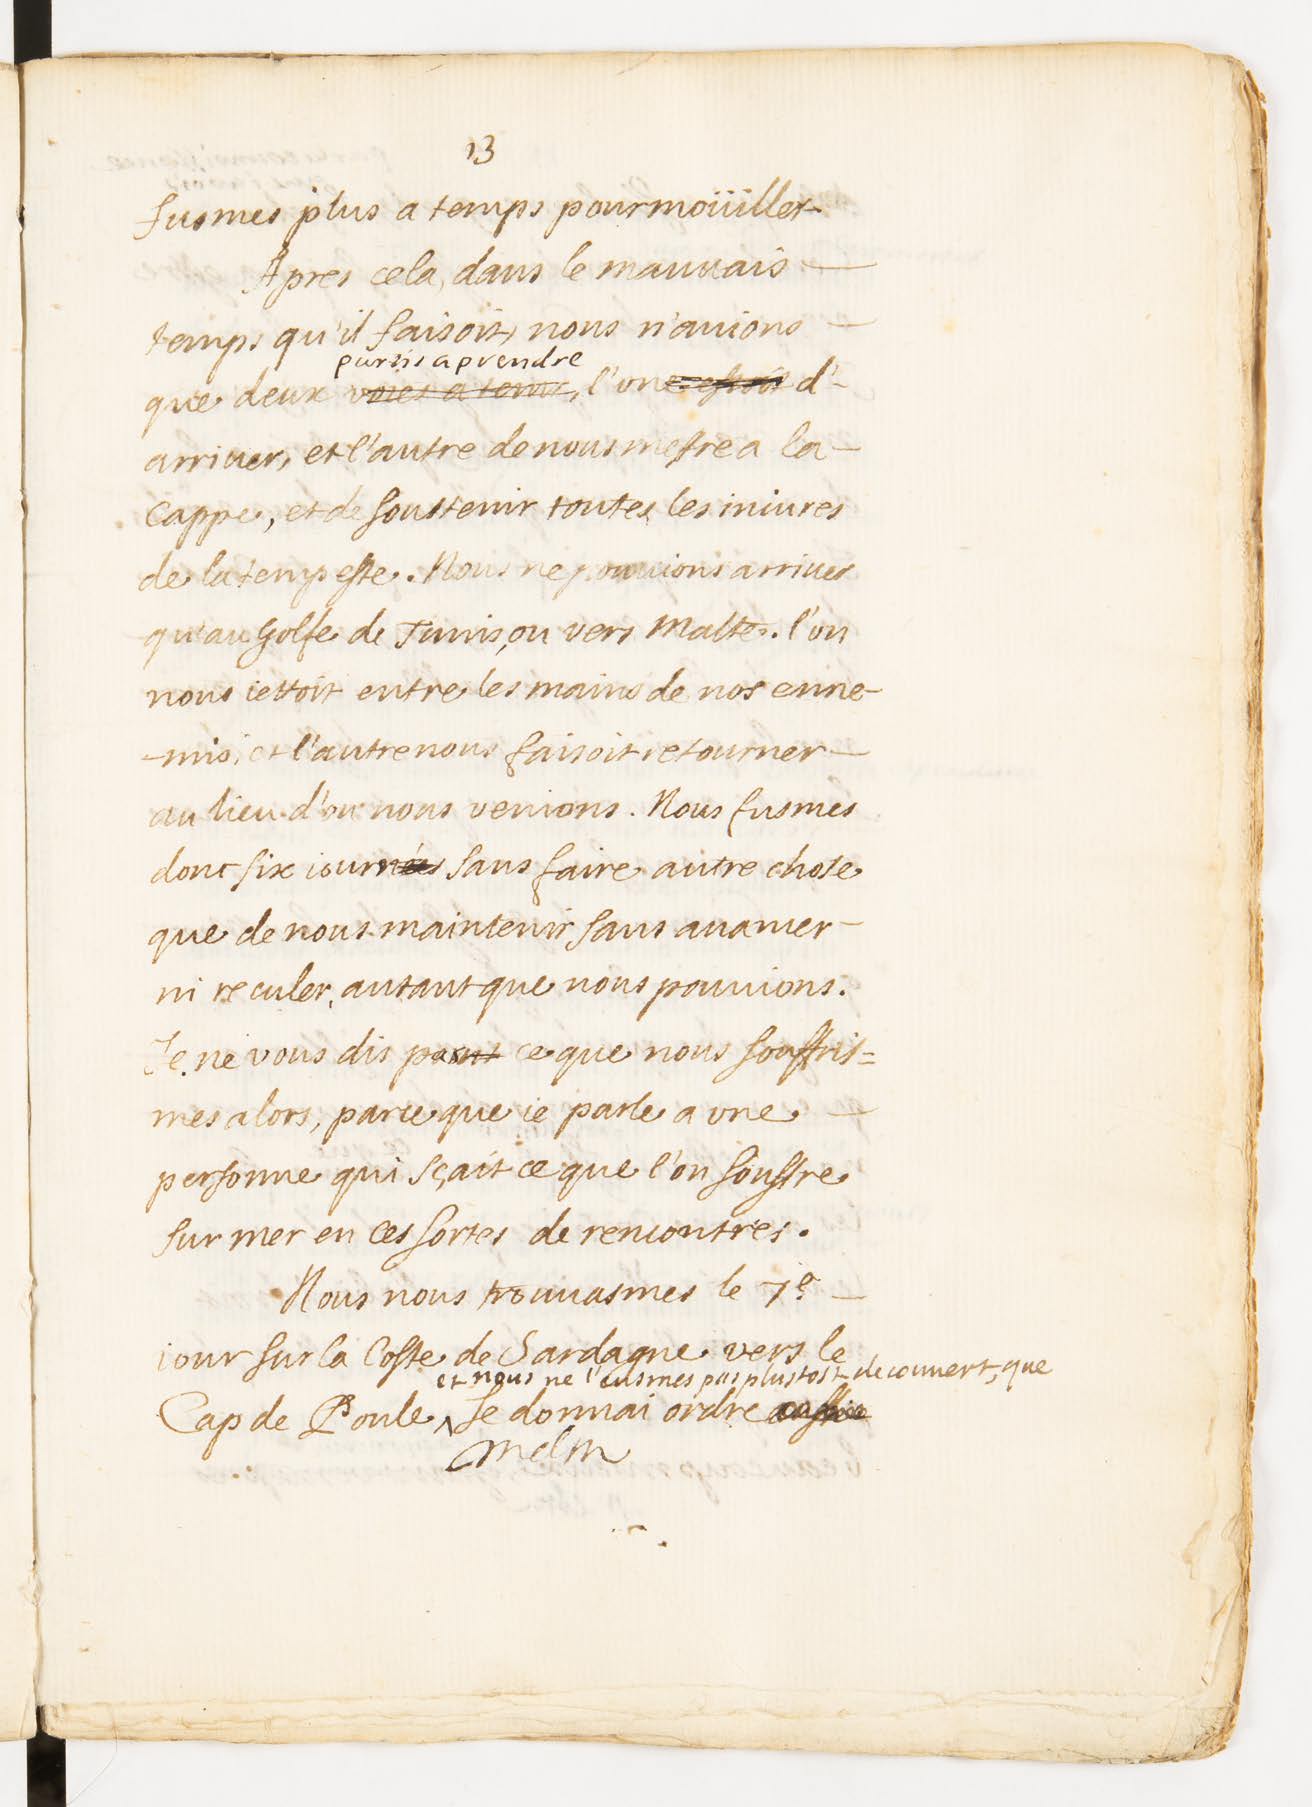 13
fusmes plus a temps pour moüiller
Apres cela, dans le mauuais
temps qu'il faisoit, nous n'auions
partis a prendre
que deux voies a tenir, l'une estoit d'
arriuer, et l'autre de nous mettre a la
Cappe, et de soustenir toutes les iniures
de la tempeste. Nous ne pouuions arriuer
qu'au Golfe de Tunis, ou vers Malte. l'un
nous iettoit entre les mains de nos enne-
-mis, et l'autre nous faisoit retourner
au lieu d'ou nous venions. Nous fusmes
donc six journées sans faire autre chose
que de nous maintenir sans auancer
ni reculer, autant que nous pouuions.
Je ne vous dis point ce que nous souffris=
mes alors, parce que ie parle a vne
personne qui sçait ce que l'on souffre
sur mer en ces sortes de rencontres.
Nous nous trouuasmes le 7e
iour sur la Coste de Sardagne vers le
et nous ne l'eusmes pas plustost decouuert, que
Cap de Poule, Je donnai ordre